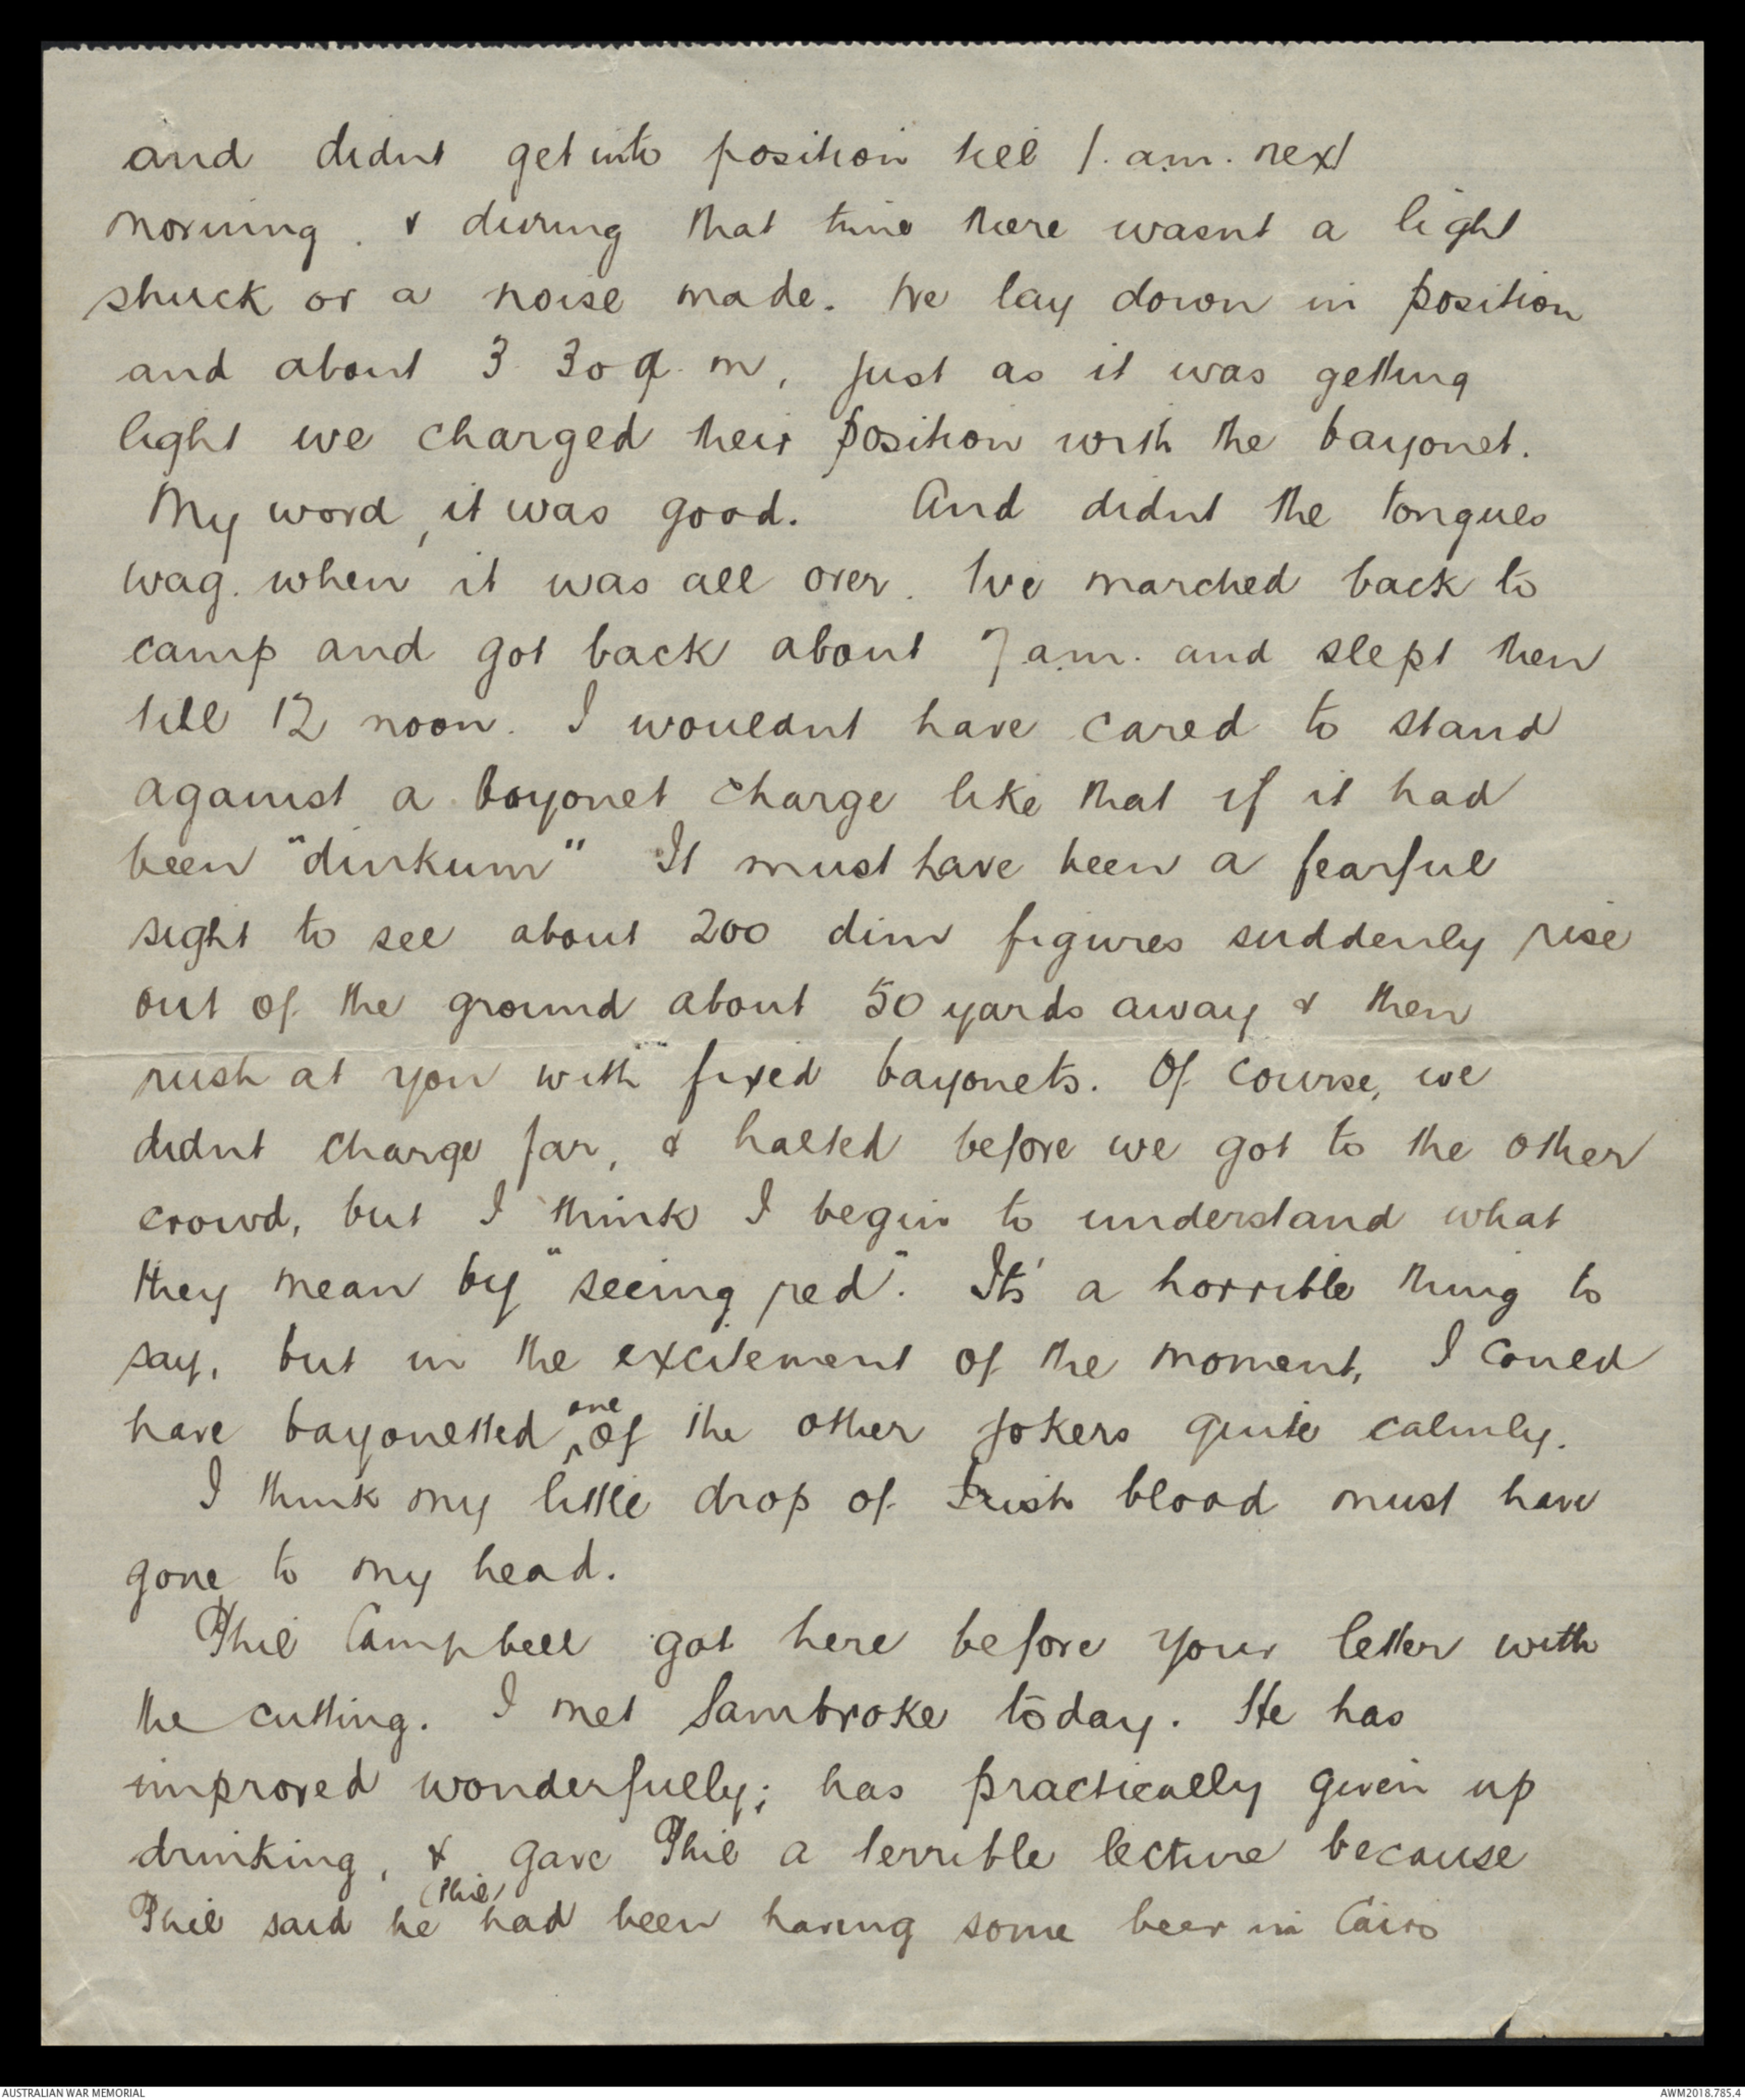 and didnt get into position till 1. a.m. next
morning. & during that time there wasnt a light
struck or a noise made. We lay down in position
and about 3 30 a. m, just as it was getting
light we charged their position with the bayonet.
My word, it was good. And didnt the tongues
wag. when it was all over. We marched back to
camp and got back about 7 a.m. and slept then
till 12 noon. I wouldnt have cared to stand
against a bayonet charge like that if it had
been "dinkum" It must have been a fearful
sight to see about 200 dim figures suddenly rise
out of the ground about 50 yards away & then
rush at you with fixed bayonets. Of course, we
didnt charge far, & halted before we got to the other
crowd, but I think I begin to understand what
they mean by "seeing red". Its' a horrible thing to
say, but in the excitement of the moment, I could
have bayonetted one of the other jokers quite calmly.
I think my little drop of Irish blood must have
gone to my head.
Phil Campbell got here before your letter with
the cutting. I met Sambroke today. He has
improved wonderfully; has practically given up
drinking, & gave Phil a terrible lecture because
Phil said he (Phil) had been having some beer in Cairo
AUSTRALIAN WAR MEMORIAL
AWM2018.785.4